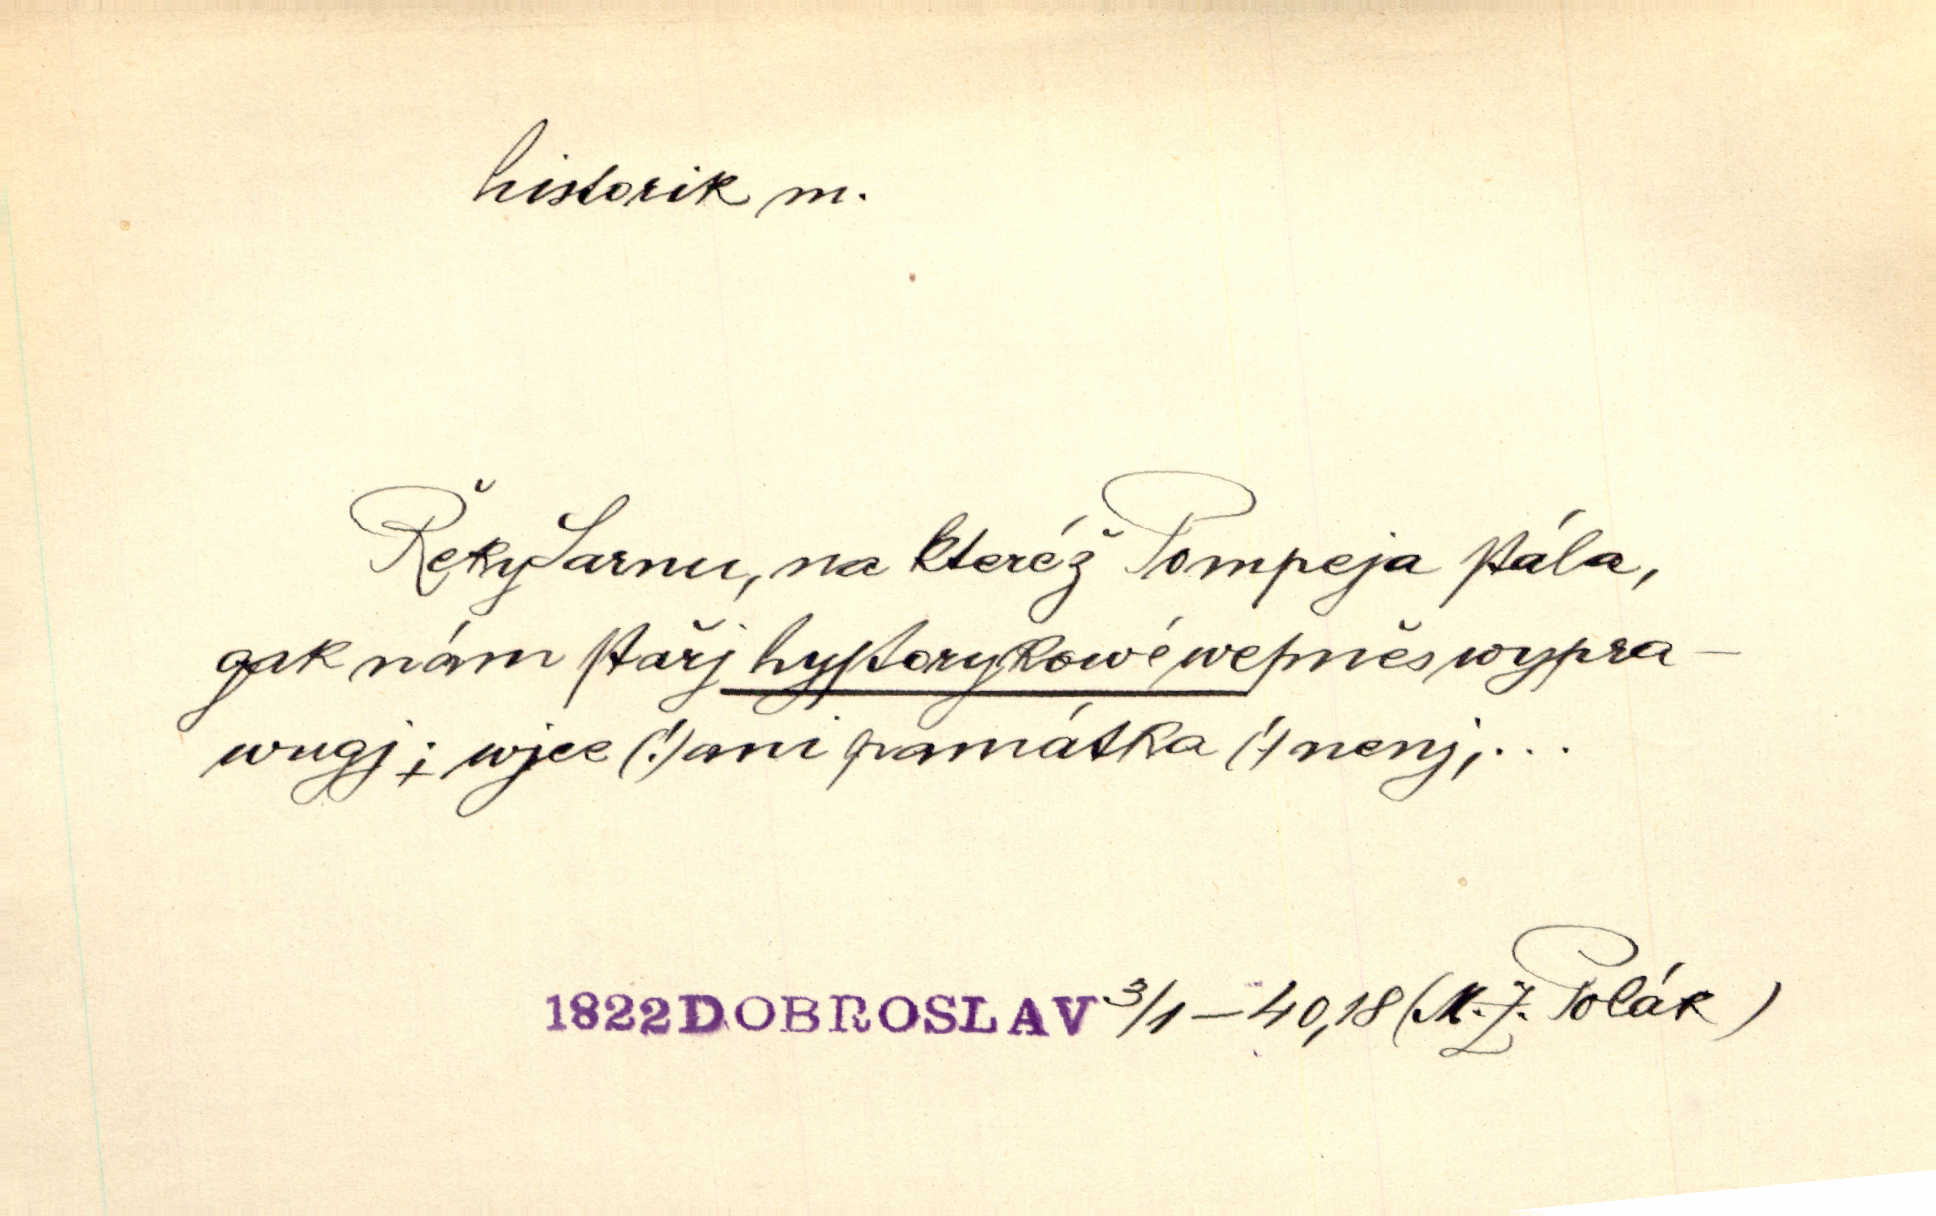 historik m.
Řeky Sarnu, na kteréž Pompeja stála,
gak nám stařj hystorykowé wepněs wypra-
wugj; wjce (!) ani památka (!) nenj,...
1822 DOBROSLAV 3/1 – 40,18 (M. Z. Polák)